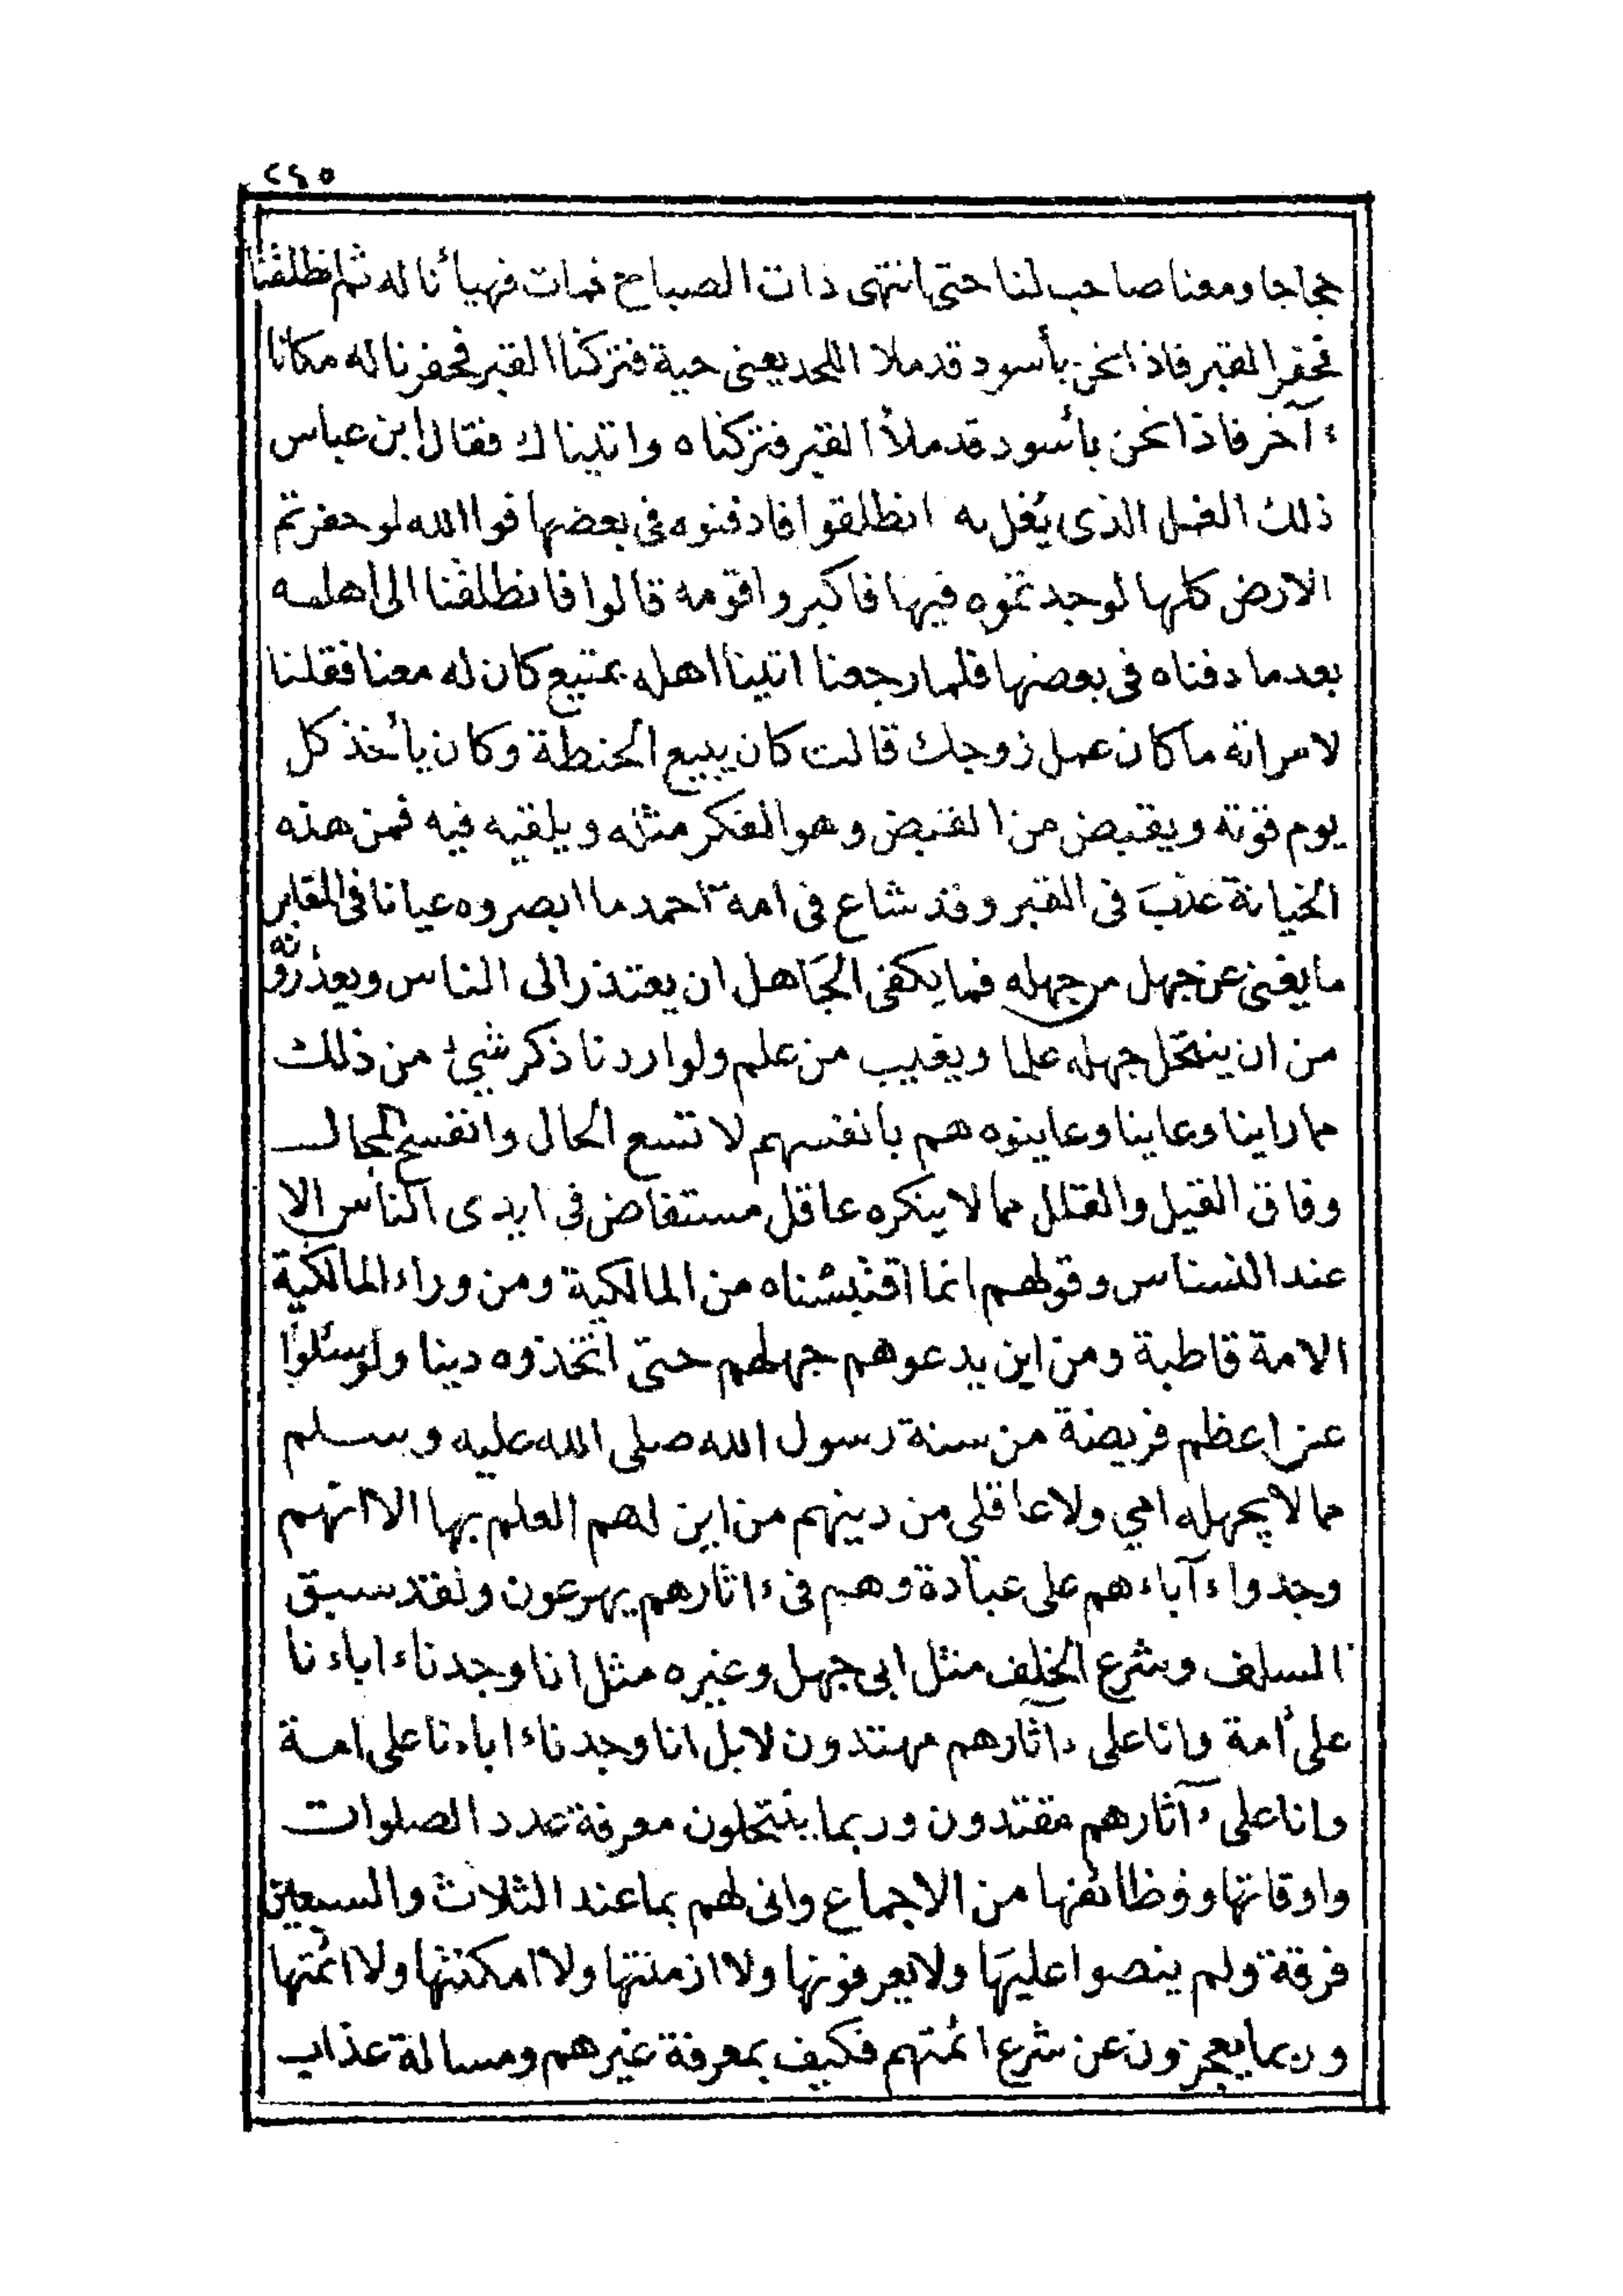 ٢٤٥
حجاجا ومعنا صاحب لنا حتى انتهى ذات الصباح فمات فهيأنا له ثم انطلقنا
نحفر القبر فاذا نحن بأسود قد ملا اللحد يعنى حية فتركنا القبر فحفرنا له مكانا
ءآخر فاذا نحن بأسود قد ملأ القبر فتركناه واتيناك فقال ابن عباس
ذلك الغل الذى يُغل به انطلقوا فادفنوه فى بعضها فوا الله لو حفرتم
الارض كلها لوجدتموه فيها فاكبروا قومه قالوا فانطلقنا الى اهله
بعد ما دفناه فى بعضها فلما رجعنا اتينا اهله بمتيع كان له معنا فقلنا
لامراته ما كان عمل زوجك قالت كان يبيع الحنطة وكان يأخذ كل
يوم قوته ويقبض من القبض وهو العكر مثله ويلقيه فيه فمن هذه
الخيانة عذب فى القبر وقد شاع فى امة احمد ما ابصروه عيانا فى المقابر
ما يغنى عن جهل من جهله فما يكفى الجاهل ان يعتذر الى الناس ويعذرونه
من ان ينتحل جهله علما ويعيب من علم ولو اردنا ذكر شىء من ذلك
مما راينا وعاينا وعاينوه هم بانفسهم لا تسع الحال وانفسح المجال
وفاق القيل والقال مما لا ينكره عاقل مستفاض فى ايدى الناس الا
عند النسناس وقولهم انما اقتبسناه من المالكية ومن وراء المالكية
الامة قاطبة ومن اين يدعوهم جهلهم حتى اتخذوه دينا ولو سئلوا
عن اعظم فريضة من سنة رسول الله صلى الله عليه وسلم
مما لا يجهله امي ولا عاقلى من دينهم من اين لهم العلم بها الا انهم
وجدوا ءآباءهم على عبادة وهم فى ءاثارهم يهرعون ولقد سبق
السلف وشرع الخلف مثل ابى جهل وغيره مثل انا وجدناء اباءنا
على أمة وانا على ءآثارهم مهتدون لا بل انا وجدناء اباءنا على امة
وانا على ءآثارهم مقتدون وربما ينتحلون معرفة عدد الصلوات
واوقاتها ووظائفها من الاجماع وانى لهم بما عند الثلاث والسبعين
فرقة ولم ينصوا عليها ولا يعرفونها ولا ازمنتها ولا امكنتها ولا ائمتها
وربما يعجزون عن شرع ائمتهم فكيف بمعرفة غيرهم ومسالة عذاب